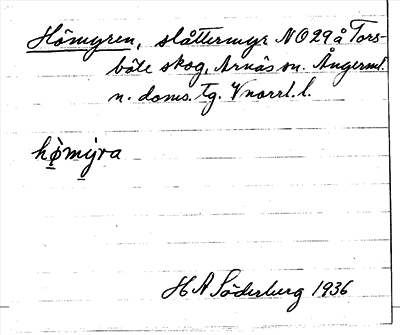 Hömyren, slåttermyr NO29å Tors-
böle skog, Arnäs sn. Ångerml.
n. doms. tg. Vnorrl. l.
hö̀mýra
H A Söderberg 1936